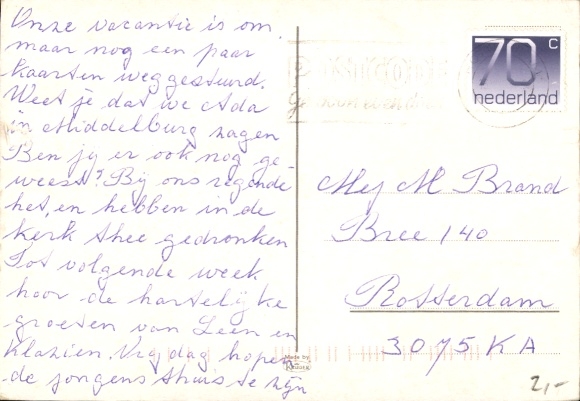 Onze vacantie is om,
maar nog een paar
kaarten weggestuurd.
Weet je dat we Ada
in Middelburg zagen
Ben jy er ook nog ge-
weest? Bij ons regende
het, en hebben in de
kerk thee gedronken
Tot volgende week
hoor de hartelijke
groeten van Leen en
Klazien. Vrijdag hopen
de jongens thuis te zijn
70 c
nederland
Mej M Brand
Bree 140
Rotterdam
3075 KA
Made by
2,-